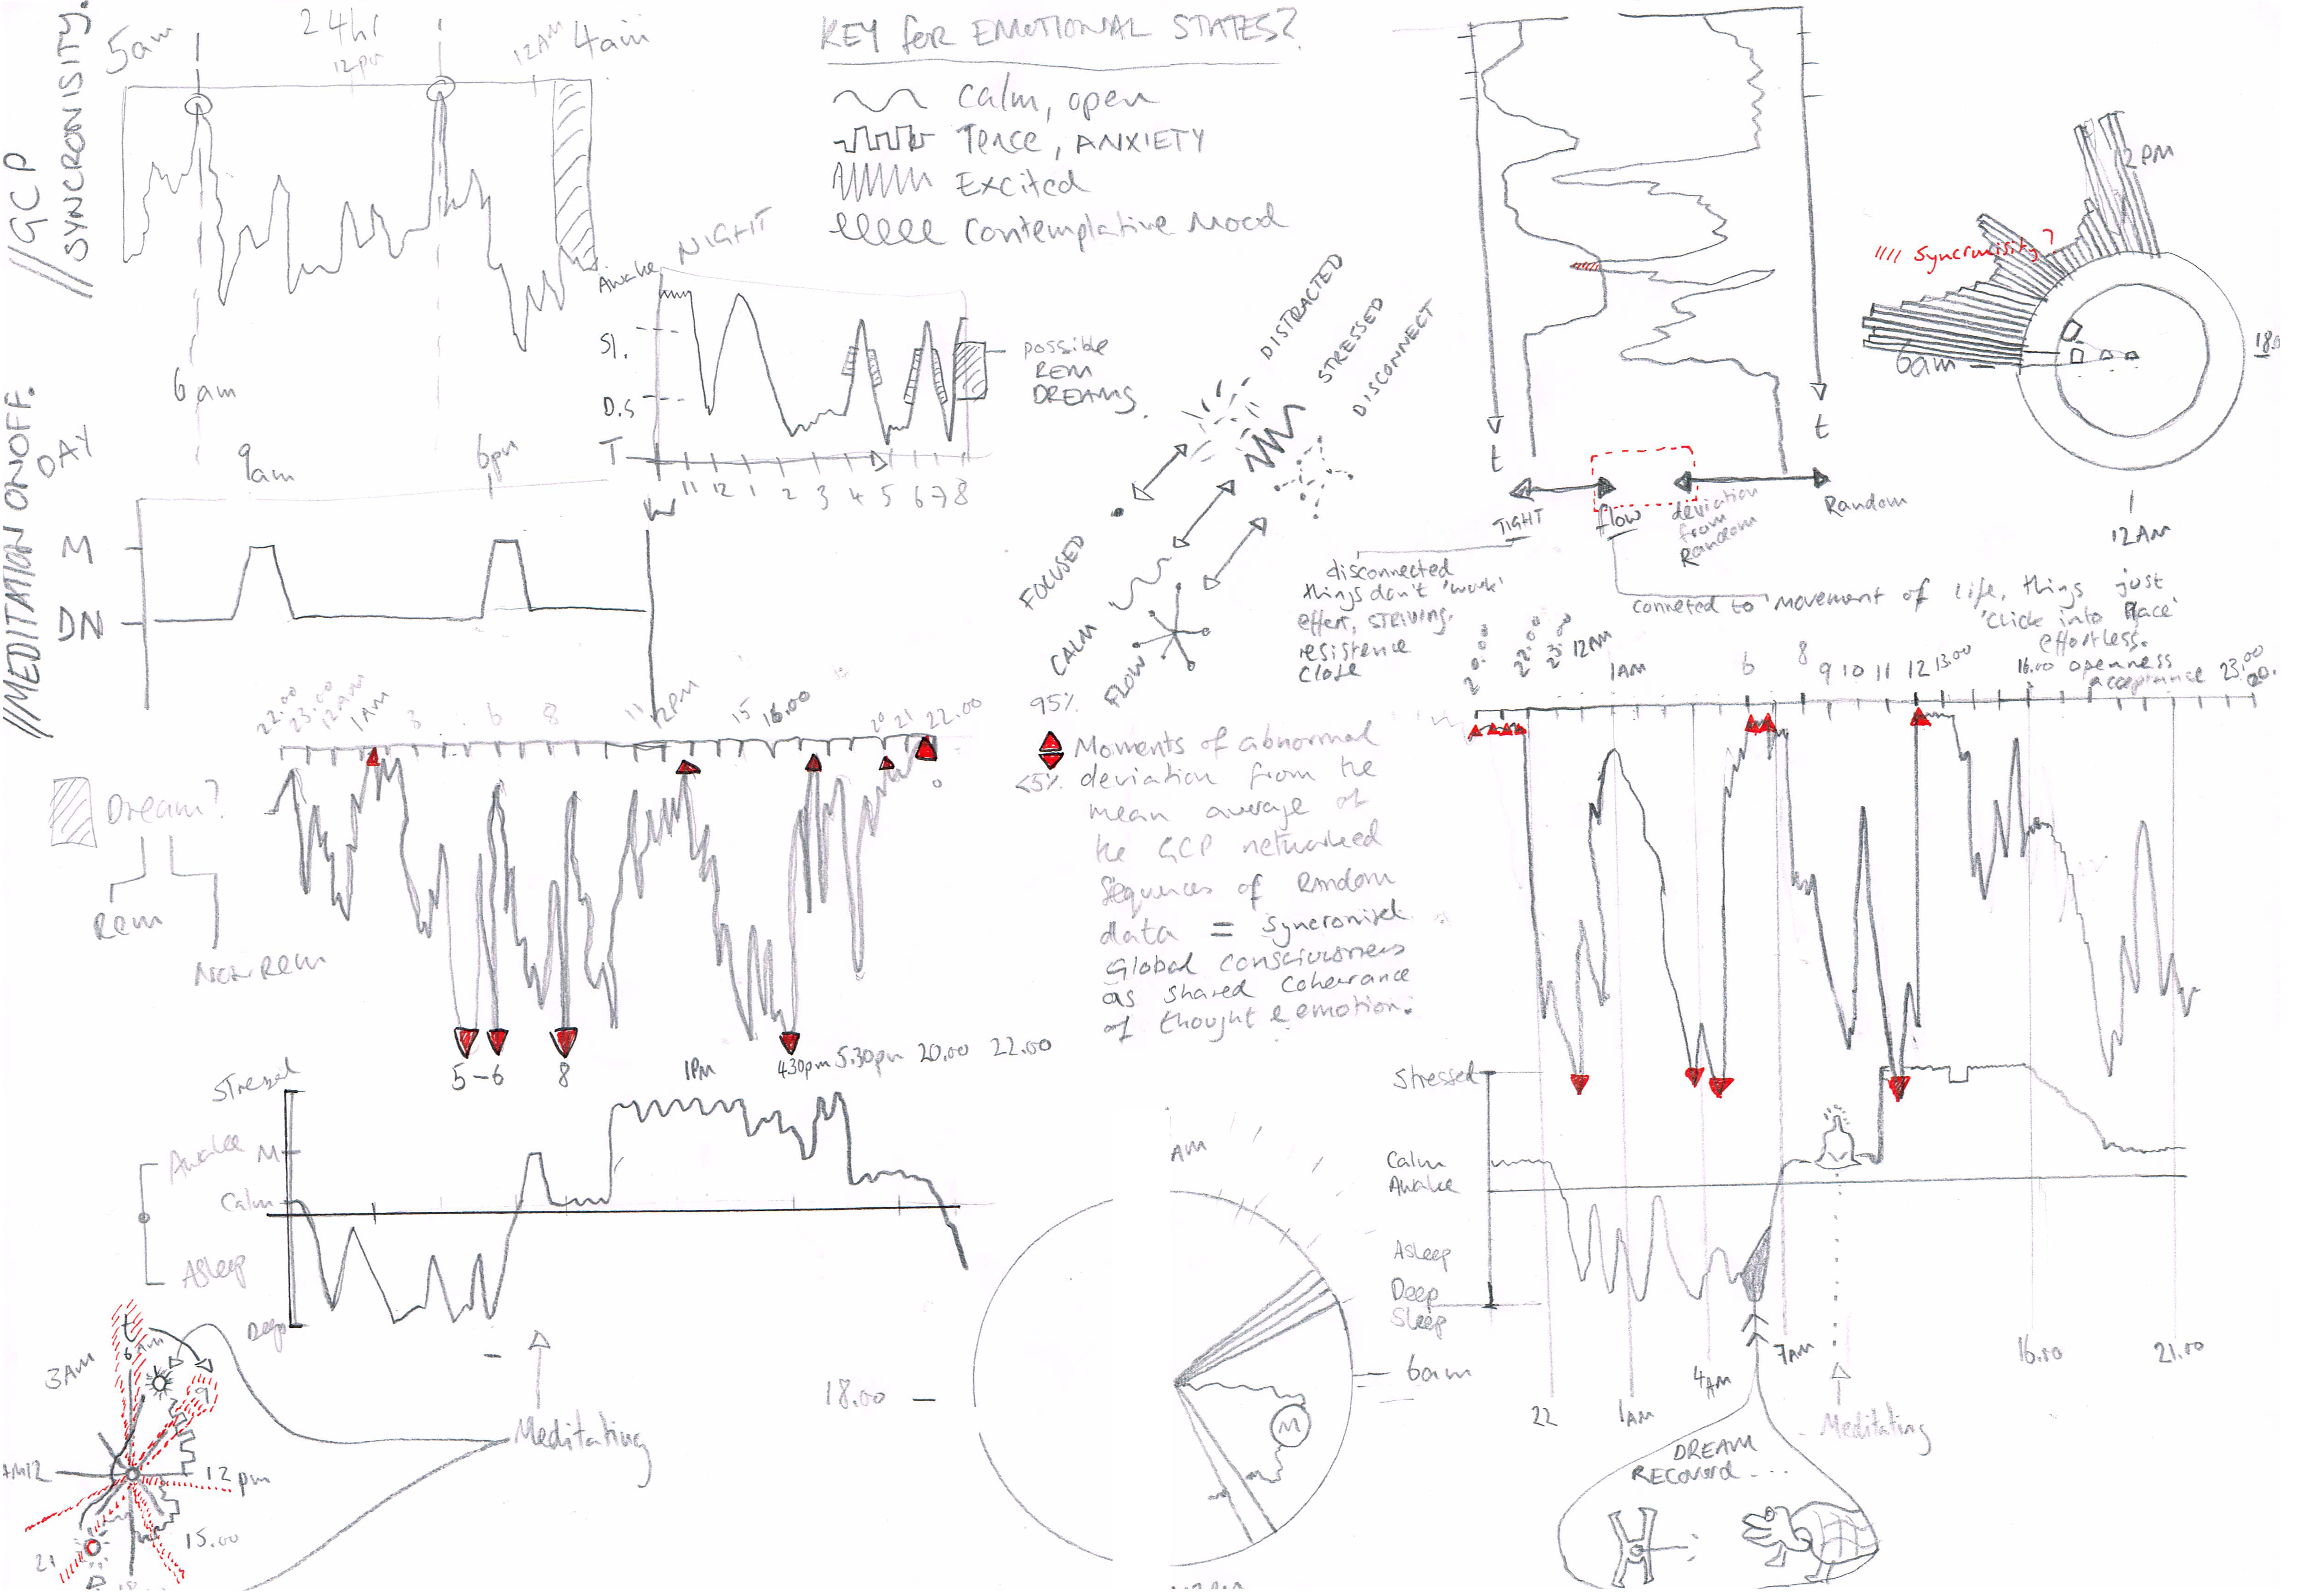 //GCP
SYNCRONISITY.
5am
24hr
12pm
12AM
4am
6am
KEY for EMOTIONAL STATES?
Calm, open
Tence, ANXIETY
Excited
Contemplative Mood
NIGHT
Awake
Sl.
D.S
T
11 12 1 2 3 4 5 6 7 8
possible
REM
DREAMS.
DISTRACTED
STRESSED
DISCONNECT
FOCUSED
CALM
FLOW
t
t
TIGHT
flow
deviation
from
Random
Random
disconnected
things don't 'work'
effert, STRIVING.
resistence
Close
conneted to movement of life, things just
'Click into Place'
effortless.
openness
acceptance
12PM
//// Syncronisity?
6am
18.0
12AM
///MEDITATION ONOFF.
DAY
9am
6pm
M
DN
22.00 23.00 12am 1AM 3 6 8 11 12PM 15 16.00 20 21 22.00
Dream?
Rem
Non Rem
5-6 8 1PM 430pm 5.30pm 20.00 22.00
95%
<5%
Moments of abnormal
deviation from the
mean average of
the GCP networked
Sequences of Random
data = Syncronised
Global consciousness
as shared Coherance
of thought & emotion.
Stressed
Awake
M
Calm
Asleep
Deep
Meditating
3AM
6AM
9
12pm
15.00
21
AM
18.00
6am
M
20.00 22.00 23.00 12AM 1AM 6 8 9 10 11 12 13.00 16.00 23.00
Stressed
Calm
Awake
Asleep
Deep
Sleep
22 1AM 4AM 7AM 16.00 21.00
Meditating
DREAM
RECOVERD....